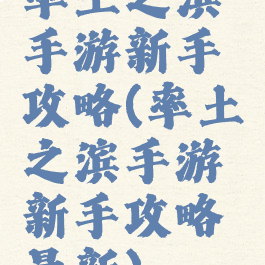 率土之滨
手游新手
攻略(率土
之滨手游
新手攻略
最新)